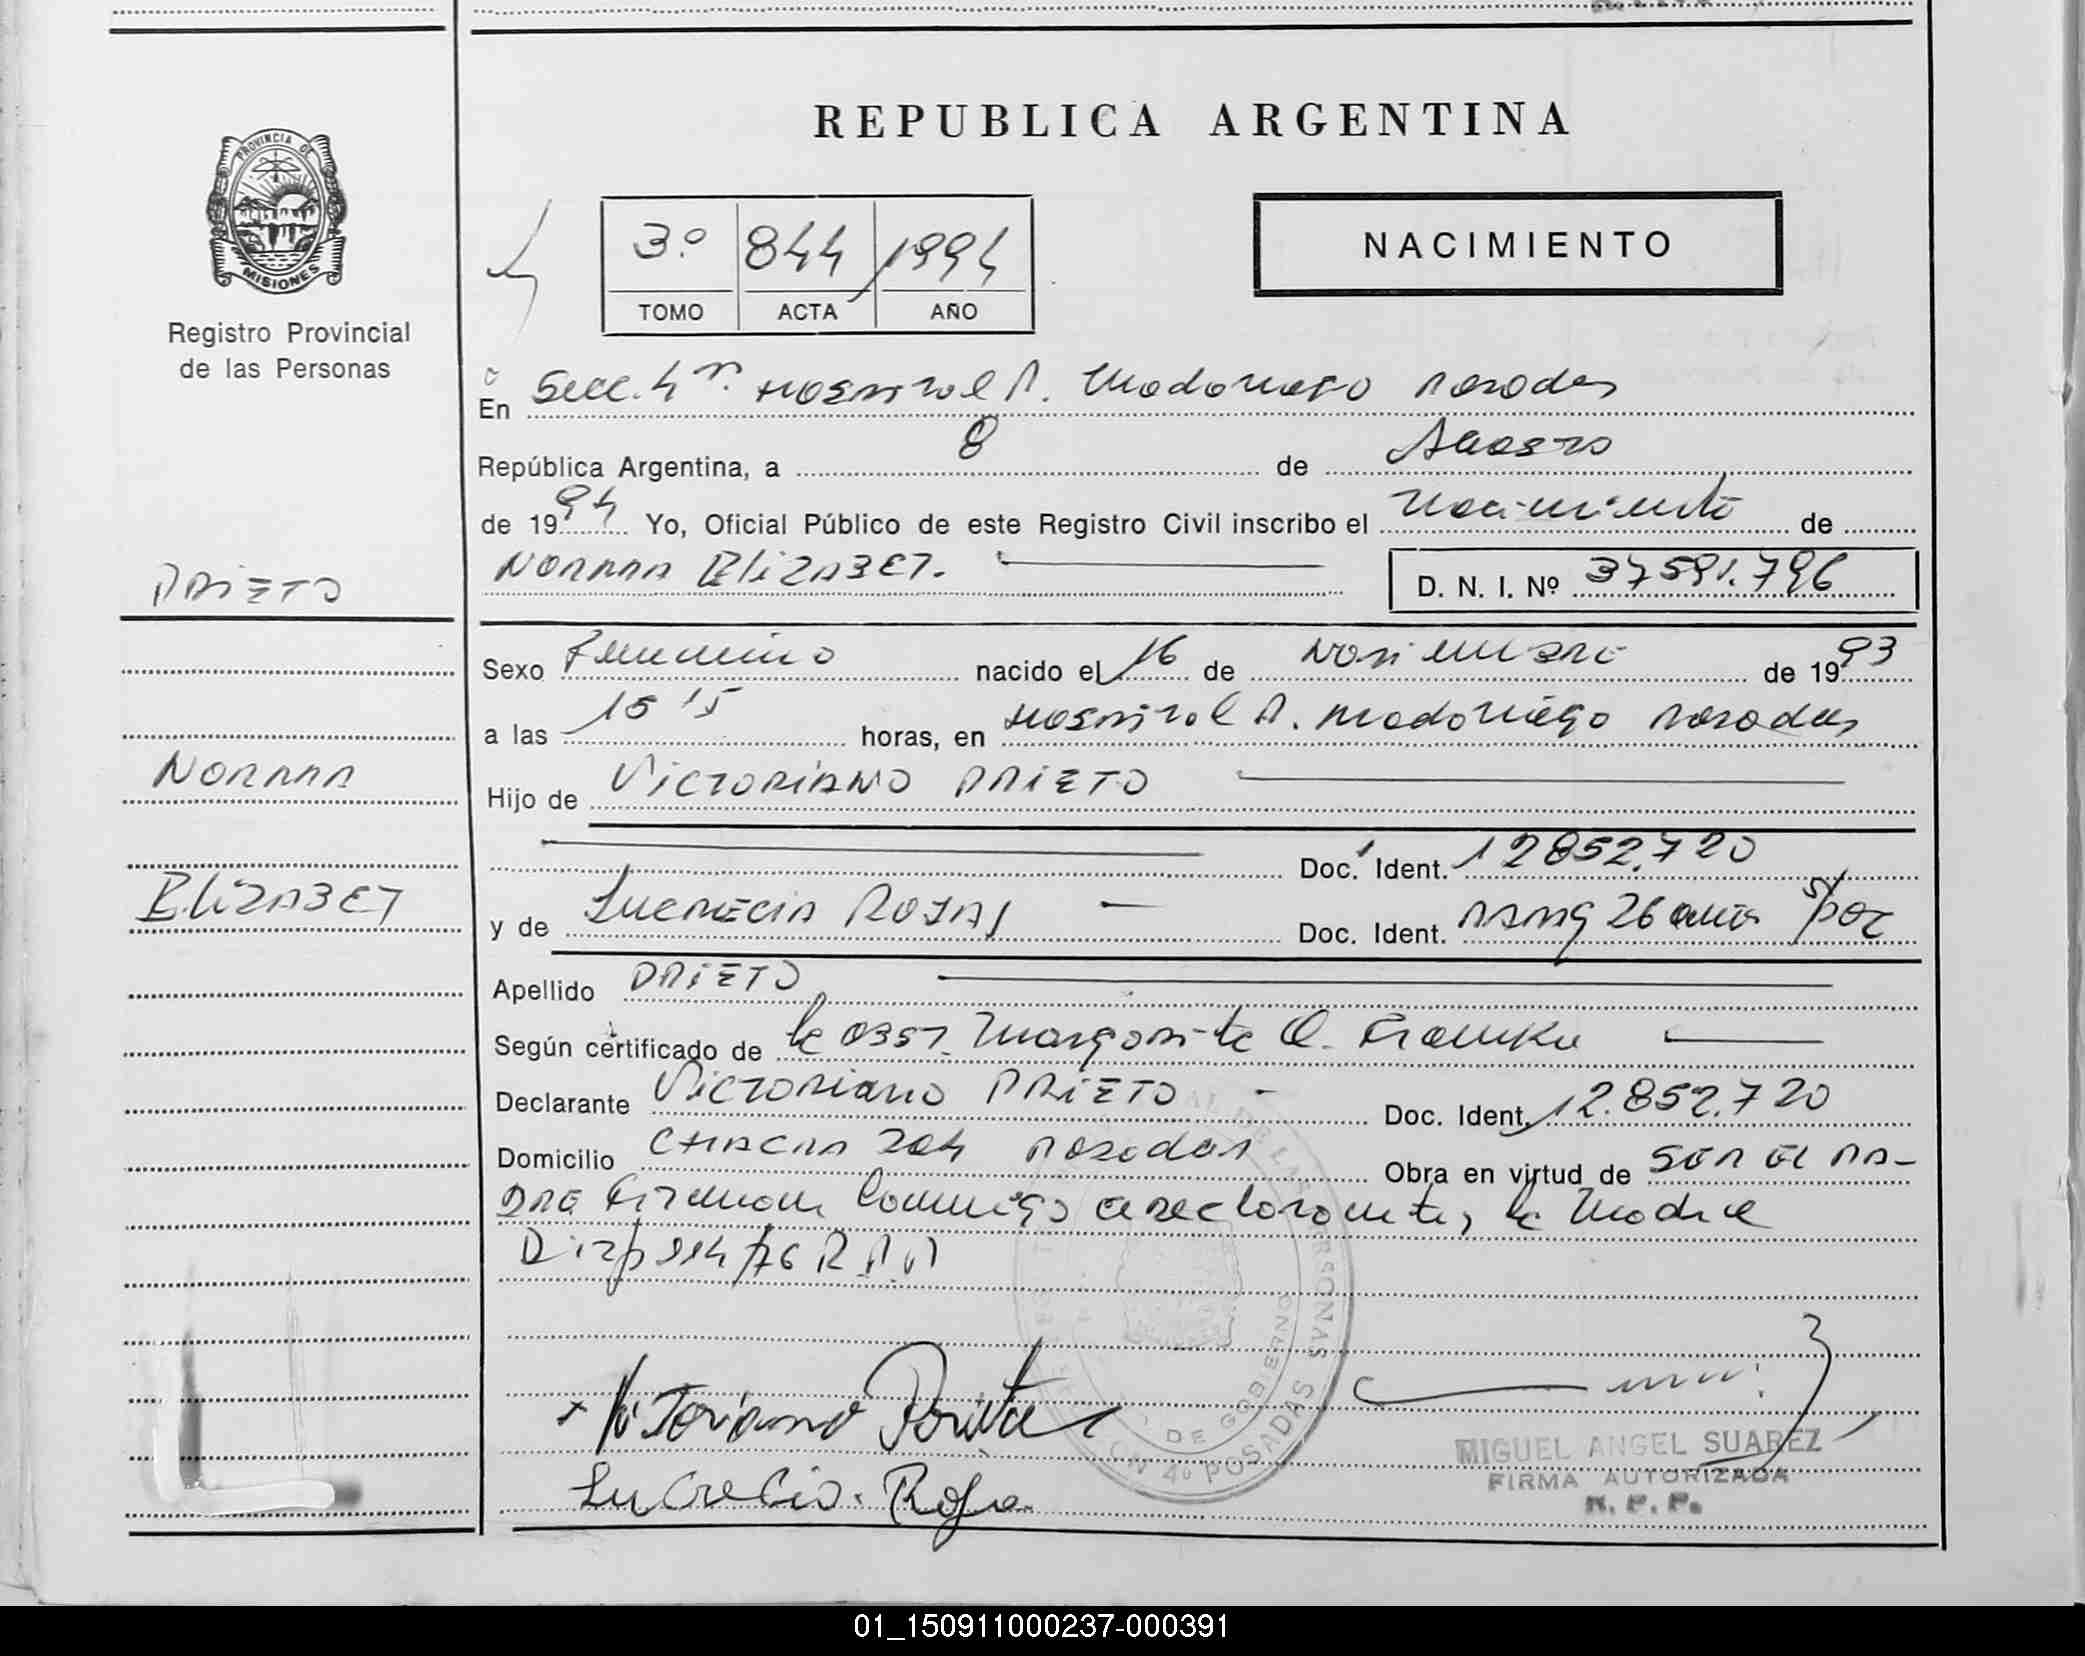 REPUBLICA ARGENTINA
PROVINCIA DE
MISIONES
Registro Provincial
de las Personas
3º 844 1994
TOMO ACTA AÑO
NACIMIENTO
En Secc. 4ª. Hospital R. Madariaga Posadas
República Argentina, a 8 de Agosto
de 1994 Yo, Oficial Público de este Registro Civil inscribo el Nacimiento de
NORMA ELIZABET. D. N. I. Nº 37591.796
PRIETO
Sexo Femenino nacido el 16 de Noviembre de 1993
a las 15 15 horas, en Hospital R. Madariaga Posadas
NORMA
Hijo de VICTORIANO PRIETO
Doc. Ident. 12852.720
ELIZABET
y de LUCRECIA ROJAS Doc. Ident. 26 años s/DOC
Apellido PRIETO
Según certificado de la Obst. Margarita
Declarante VICTORIANO PRIETO Doc. Ident. 12.852.720
Domicilio CHACRA 204 Posadas Obra en virtud de SER EL PA-
DRE Firman conmigo el declarante, la Madre
Victoriano Prieto
Lucrecia. Roja
DE GOBIERNO
DE LAS PERSONAS
4º POSADAS
MIGUEL ANGEL SUAREZ
FIRMA AUTORIZADA
R. P. P.
01_150911000237-000391